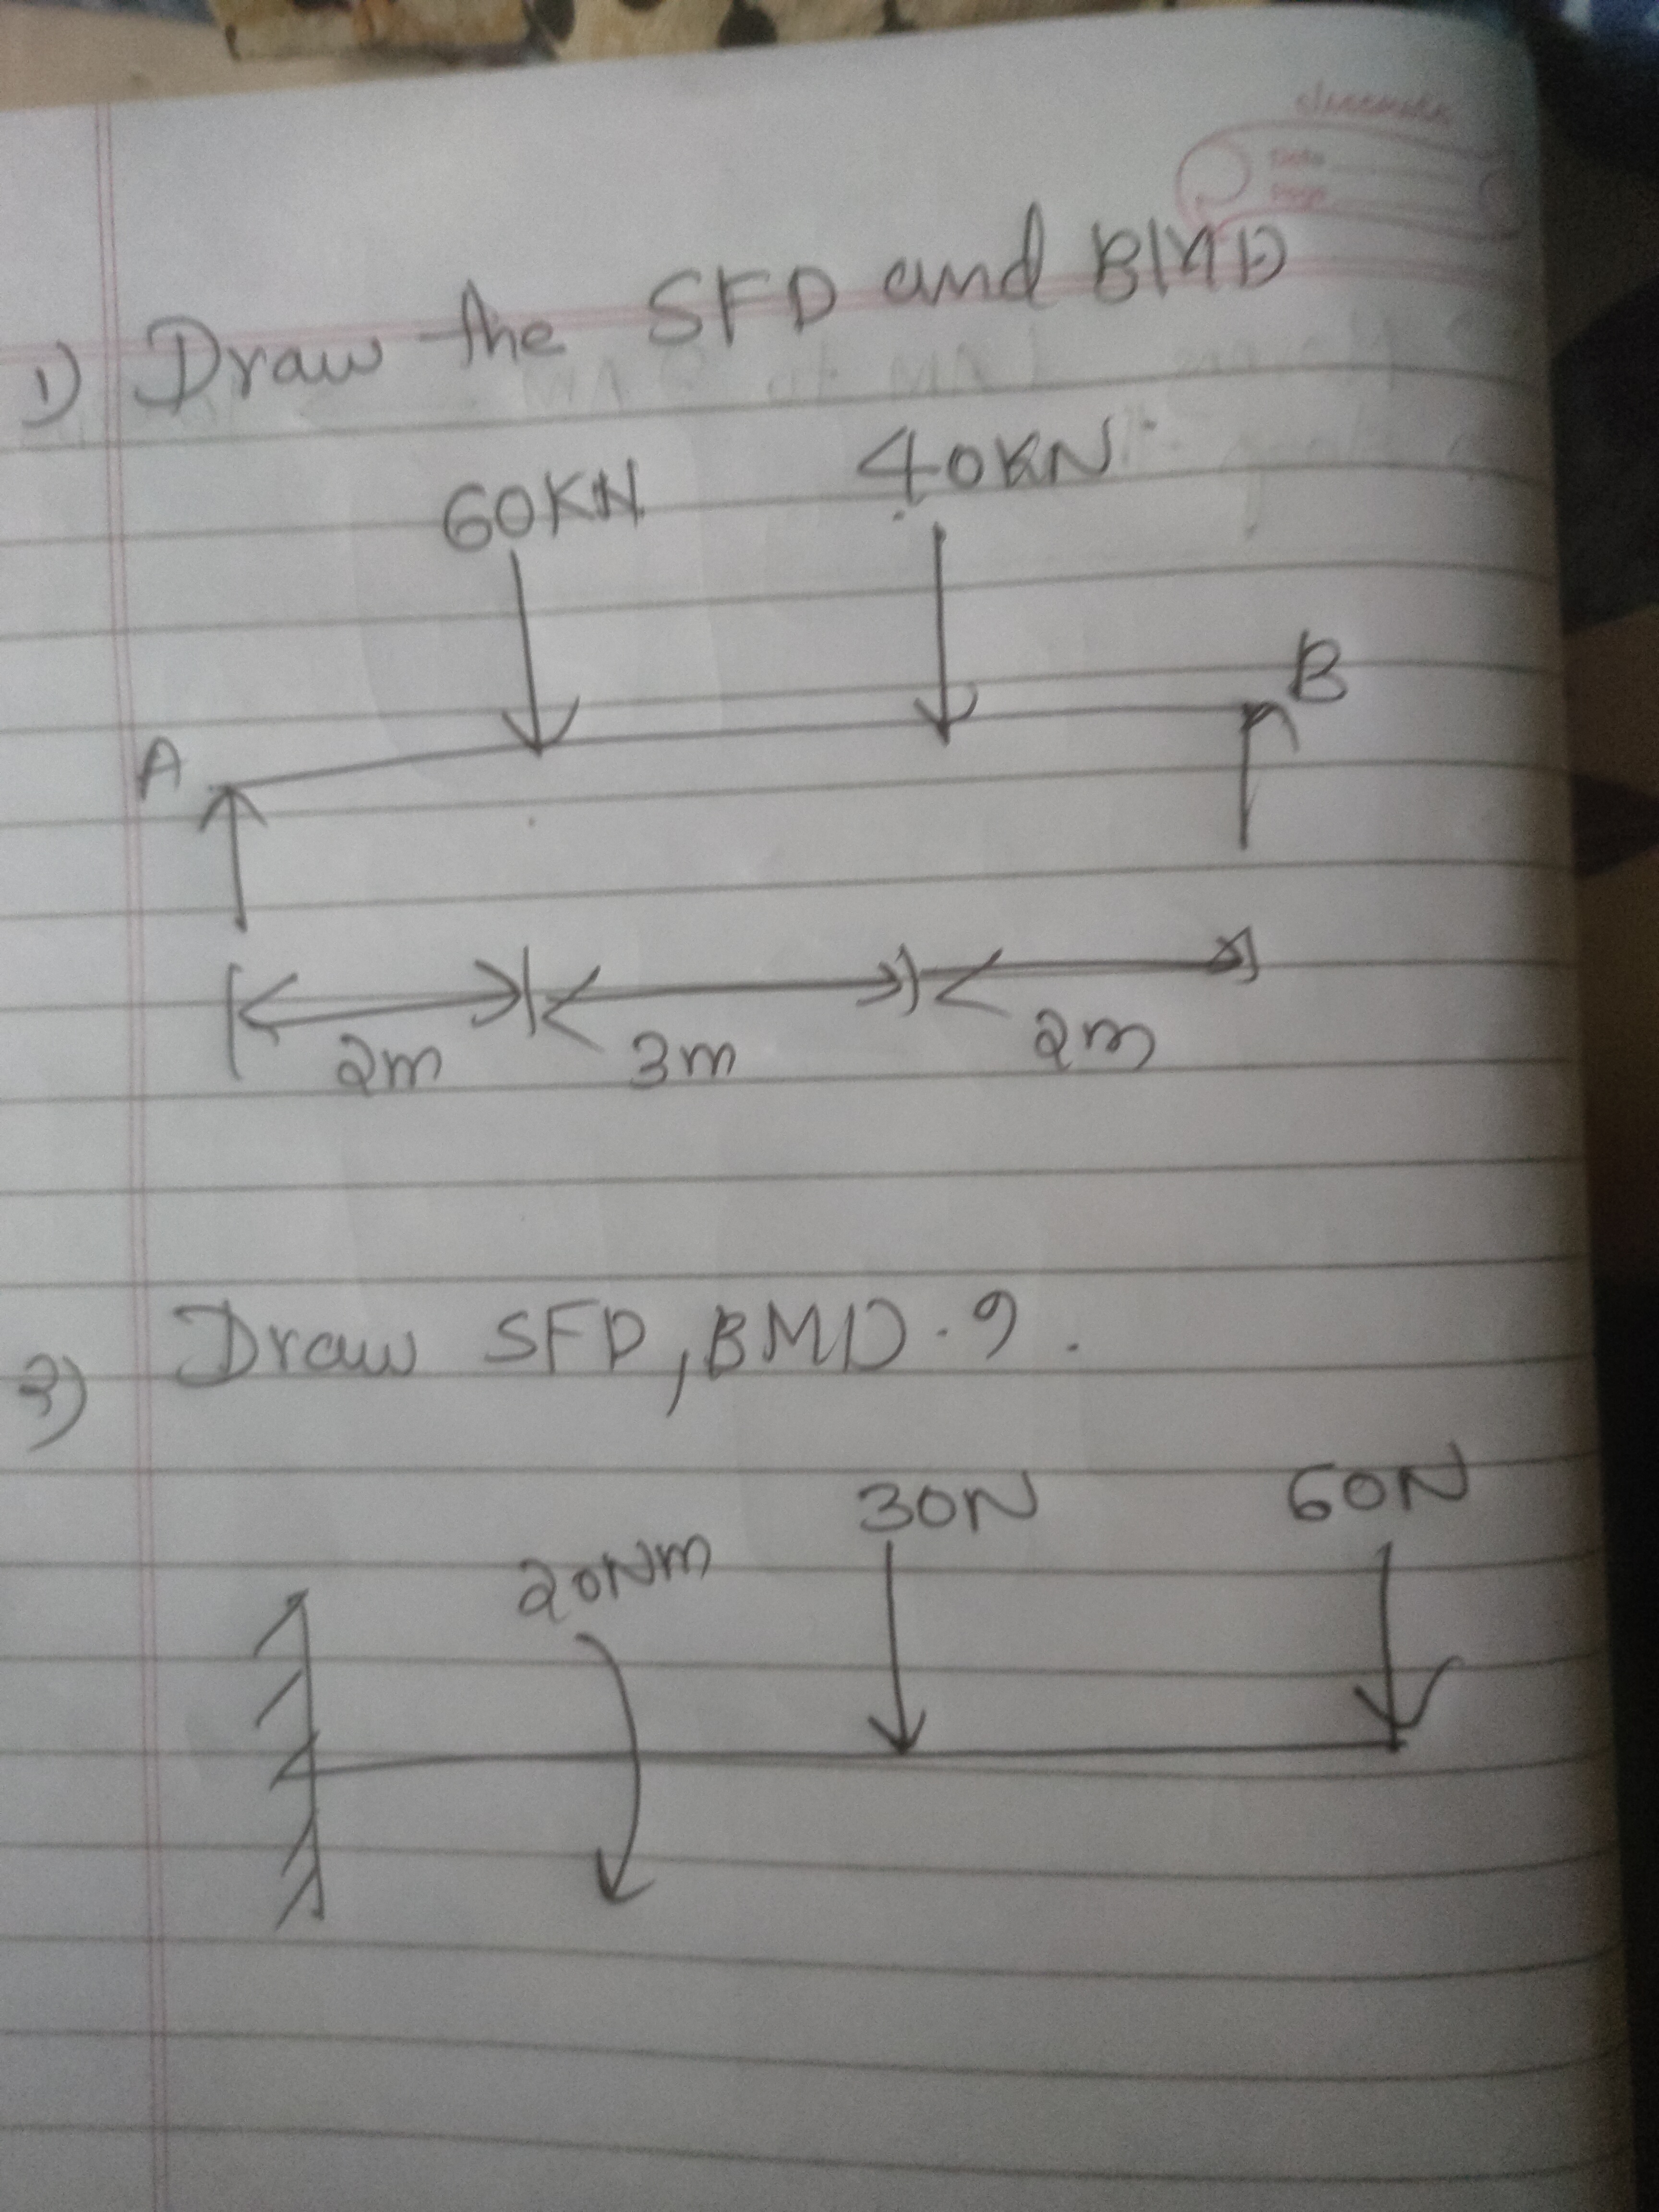 1) Draw the SFD and BMD
60KN 40KN
A B
2m 3m 2m
2) Draw SFD, BMD.?.
20Nm 30N 60N